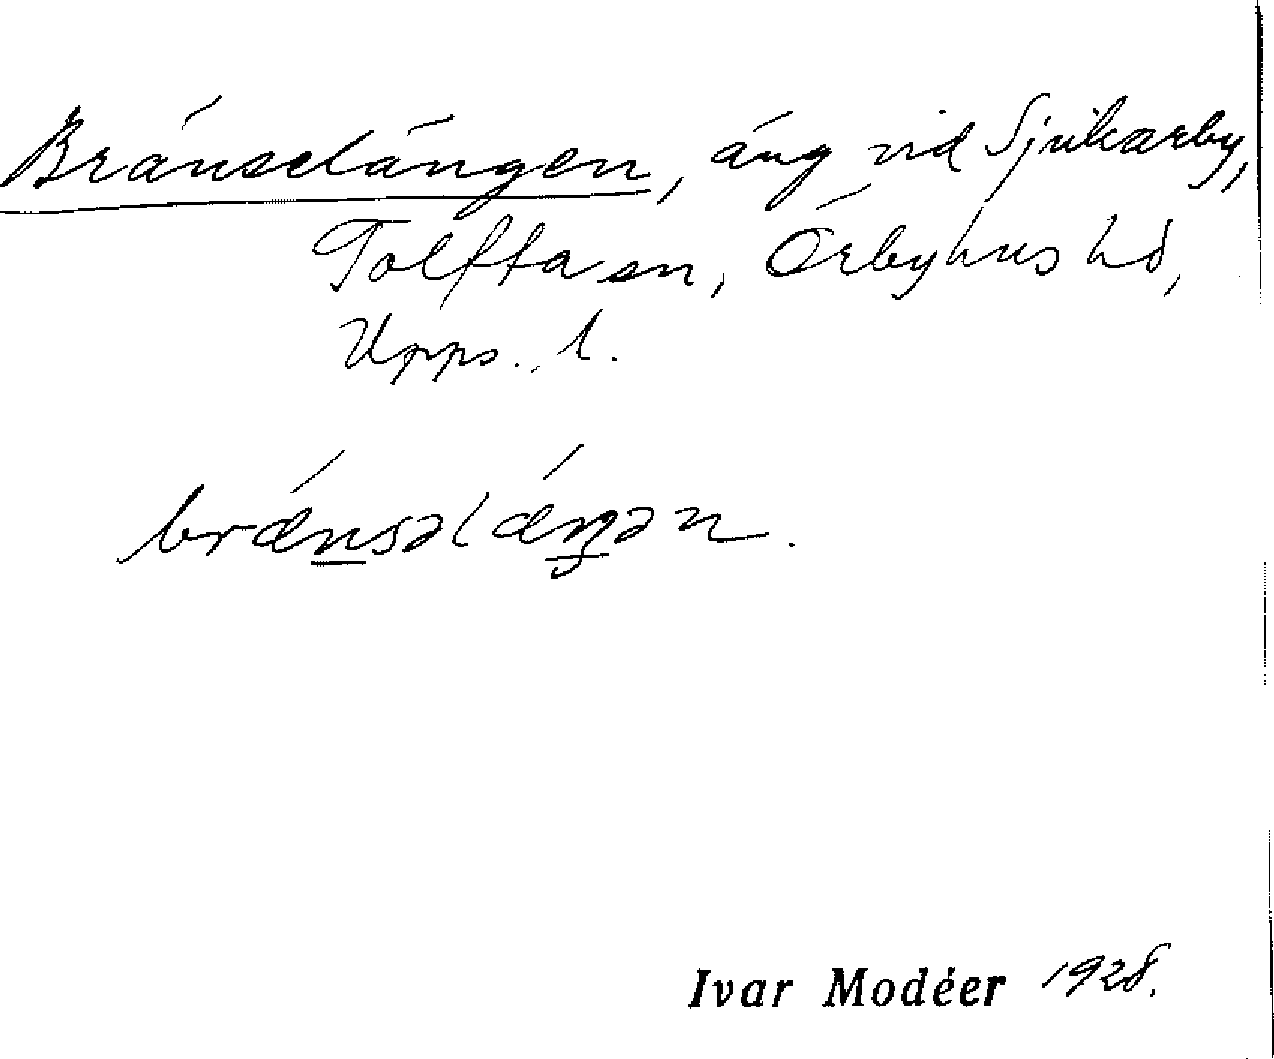 Bränselängen, äng vid Sjukarby,
Tolfta sn, Örbyhus hd,
Upps. l.
brǽnsəlǽŋən.
Ivar Modéer 1928.